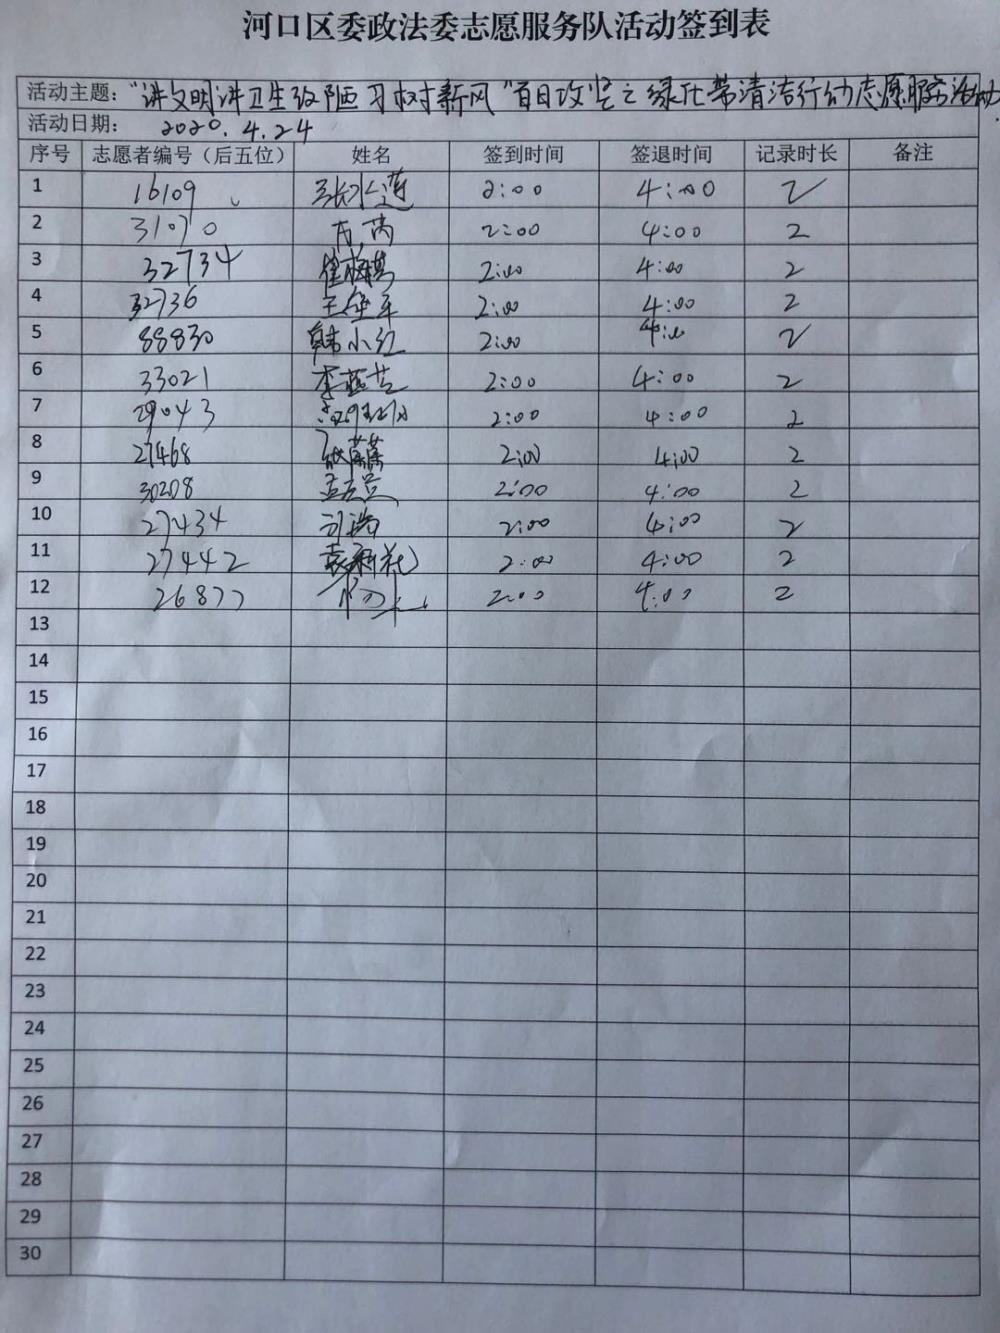 河口区委政法委志愿服务队活动签到表
活动主题：“讲文明讲卫生改陋习树新风”百日攻坚之绿化带清洁行动志愿服务活动
活动日期： 2020.4.24
序号 志愿者编号（后五位） 姓名 签到时间 签退时间 记录时长 备注
1 16109 张水莲 2:00 4:00 2
2 31070 2:00 4:00 2
3 32734 2:00 4:00 2
4 32736 2:00 4:00 2
5 88830 韩小红 2:00 4:00 2
6 33021 2:00 4:00 2
7 29043 2:00 4:00 2
8 27468 2:00 4:00 2
9 30208 2:00 4:00 2
10 27434 2:00 4:00 2
11 27442 2:00 4:00 2
12 26877 2:00 4:00 2
13
14
15
16
17
18
19
20
21
22
23
24
25
26
27
28
29
30